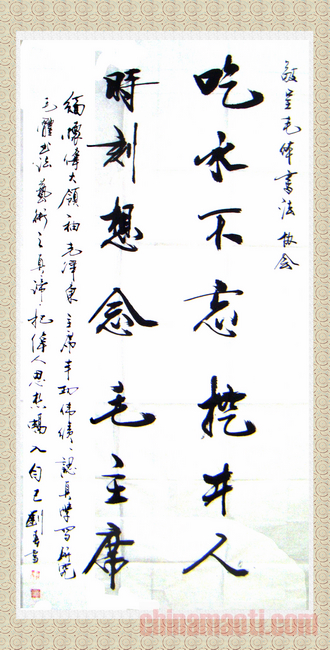 敬呈毛体書法协会
吃水不忘挖井人
時刻想念毛主席
缅懷偉大領袖毛泽東主席丰功伟绩、認真学習研究
毛體书法藝術之真谛把偉人思想融入自己
chinamaoti.com